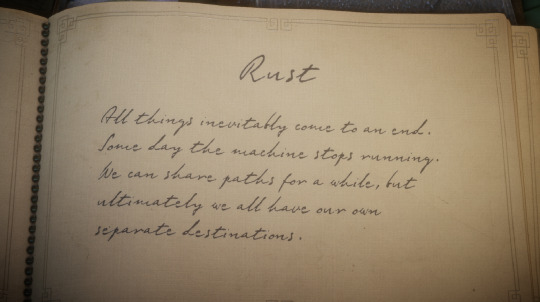 Rust
All things inevitably come to an end.
Some day the machine stops running.
We can share paths for a while, but
ultimately we all have our own
separate destinations.